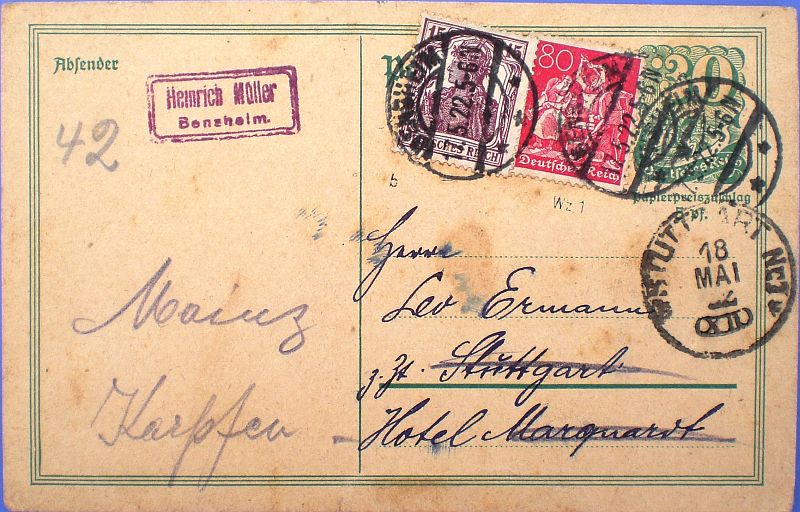 Absender
Heinrich Müller
Bensheim.
42
15
DEUTSCHES REICH
80
Deutsches Reich
30
Deutsches Reich
Papierpreiszuschlag
5 pf.
b
Wz 1
STUTTGART No 9
18
MAI
Herrn
Leo Ermann
z. Zt. Stuttgart
Hotel Marquardt
Mainz
Karpfen